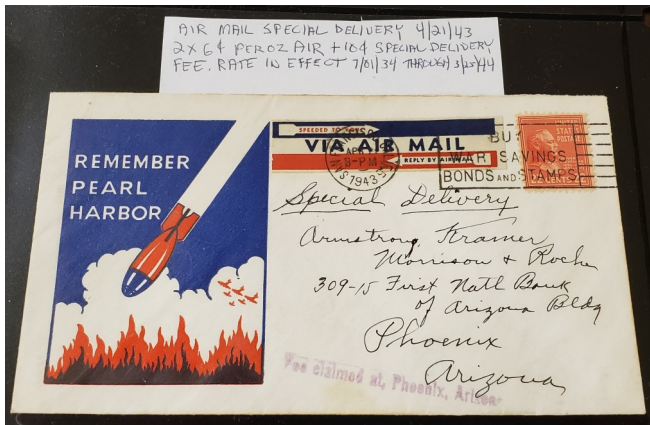 AIR MAIL SPECIAL DELIVERY 4/21/43
2X6¢ PER OZ AIR + 10¢ SPECIAL DELIVERY
FEE. RATE IN EFFECT 7/01/34 THROUGH 3/25/44
REMEMBER
PEARL
HARBOR
SPEEDED TO YOU
VIA AIR MAIL
REPLY BY AIRWAY
APR
3-PM
1943
BUY
WAR SAVINGS
BONDS AND STAMPS
UNITED
STATES
POSTAGE
Special Delivery
Armstrong, Kramer
Morrison & Roche
309-15 First Natl Bank
of Arizona Bldg
Phoenix
Arizona
Fee claimed at, Phoenix, Arizona